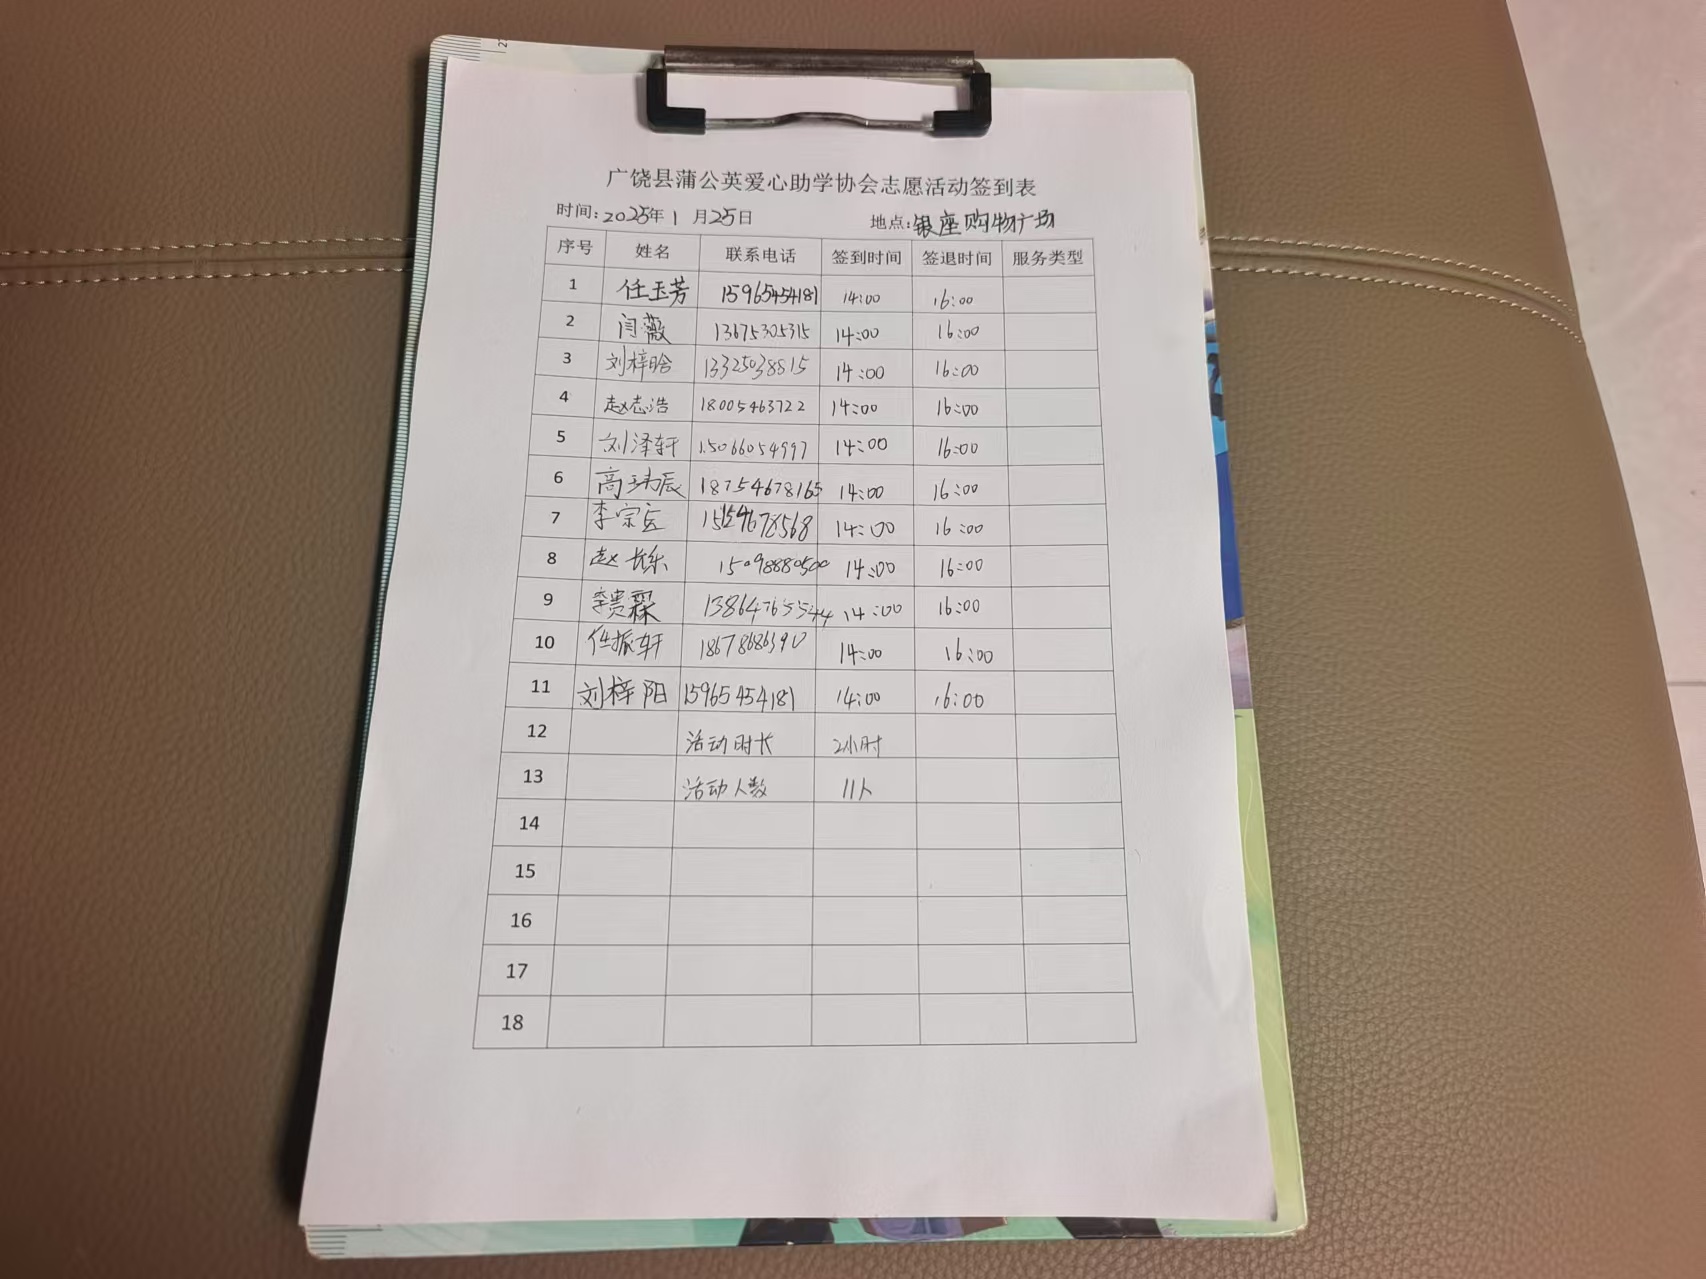 广饶县蒲公英爱心助学协会志愿活动签到表
时间:2025年1月25日 地点:银座购物广场
序号 姓名 联系电话 签到时间 签退时间 服务类型
1 任玉芳 15965454181 14:00 16:00
2 闫薇 13675305315 14:00 16:00
3 刘梓晗 13325038815 14:00 16:00
4 赵志浩 18005463722 14:00 16:00
5 刘泽轩 15066054997 14:00 16:00
6 高玮辰 18754678165 14:00 16:00
7 李宗 14:00 16:00
8 赵长乐 15098880500 14:00 16:00
9 李贵霖 13864765544 14:00 16:00
10 任振轩 18678686390 14:00 16:00
11 刘梓阳 15965454181 14:00 16:00
12 活动时长 2小时
13 活动人数 11人
14
15
16
17
18